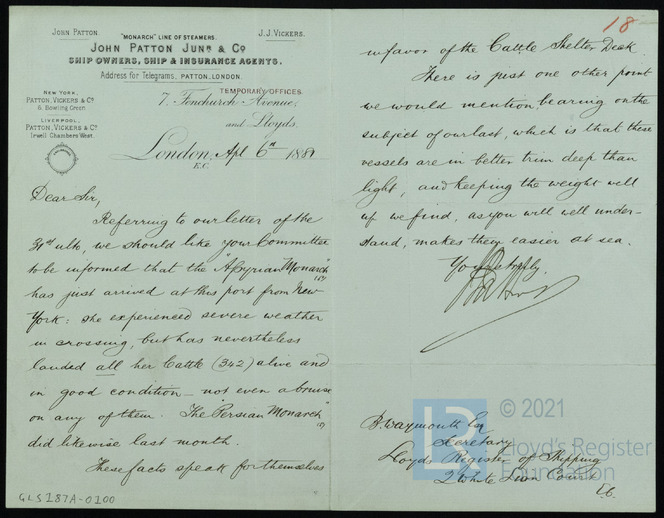 JOHN PATTON.
J. J. VICKERS.
"MONARCH" LINE OF STEAMERS.
JOHN PATTON JUNR & CO
SHIP OWNERS, SHIP & INSURANCE AGENTS.
Address for Telegrams, PATTON, LONDON.
NEW YORK,
PATTON, VICKERS & CO
6, Bowling Green
LIVERPOOL,
PATTON, VICKERS & CO
Irwell Chambers West.
TEMPORARY OFFICES
7, Fenchurch Avenue,
and Lloyds,
London, Apl 6th 1881
E.C.
Dear Sir,
Referring to our letter of the
31st ulto, we should like your Committee
to be informed that the "Assyrian Monarch"
has just arrived at this port from New
York: she experienced severe weather
in crossing, but has nevertheless
landed all her Cattle (342) alive and
in good condition - not even a bruise
on any of them. The "Persian Monarch"
did likewise last month.
These facts speak for themselves
GLS187A-0100
18
in favor of the Cattle Shelter Deck.
There is just one other point
we would mention bearing on the
subject of our last, which is that these
vessels are in better trim deep than
light, and keeping the weight well
up we find, as you will well under-
stand, makes them easier at sea.
Yours truly,
B. Waymouth Esq
Secretary
Lloyds Register of Shipping
2 White Lion Court
E.C.
LR
© 2021
Lloyd's Register
Foundation